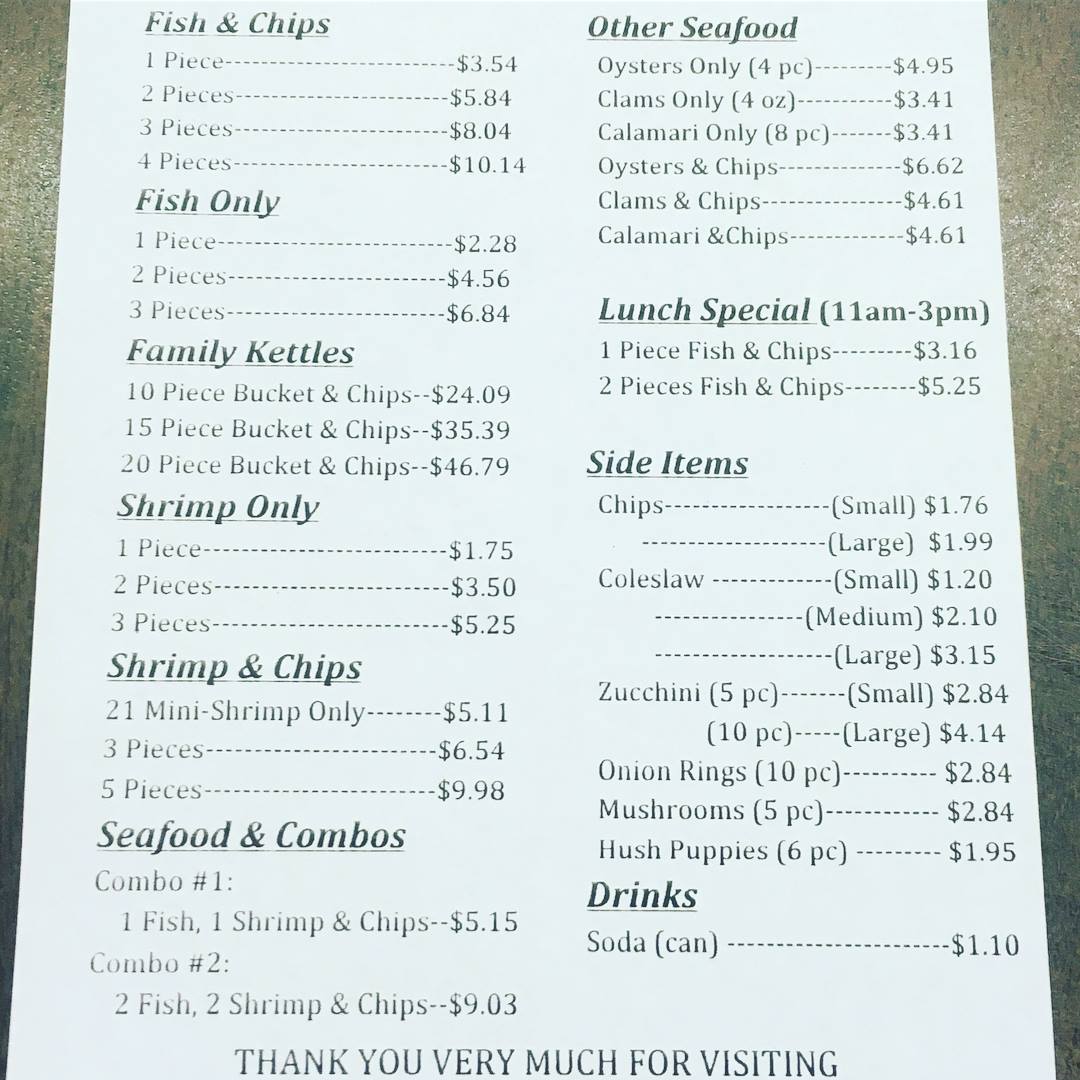 Fish & Chips
1 Piece--------------------------$3.54
2 Pieces------------------------$5.84
3 Pieces------------------------$8.04
4 Pieces------------------------$10.14
Fish Only
1 Piece--------------------------$2.28
2 Pieces------------------------$4.56
3 Pieces------------------------$6.84
Family Kettles
10 Piece Bucket & Chips--$24.09
15 Piece Bucket & Chips--$35.39
20 Piece Bucket & Chips--$46.79
Shrimp Only
1 Piece--------------------------$1.75
2 Pieces-------------------------$3.50
3 Pieces-------------------------$5.25
Shrimp & Chips
21 Mini-Shrimp Only--------$5.11
3 Pieces------------------------$6.54
5 Pieces------------------------$9.98
Seafood & Combos
Combo #1:
1 Fish, 1 Shrimp & Chips--$5.15
Combo #2:
2 Fish, 2 Shrimp & Chips--$9.03
Other Seafood
Oysters Only (4 pc)---------$4.95
Clams Only (4 oz)-----------$3.41
Calamari Only (8 pc)-------$3.41
Oysters & Chips--------------$6.62
Clams & Chips----------------$4.61
Calamari &Chips-------------$4.61
Lunch Special (11am-3pm)
1 Piece Fish & Chips---------$3.16
2 Pieces Fish & Chips--------$5.25
Side Items
Chips------------------(Small) $1.76
--------------------(Large) $1.99
Coleslaw -------------(Small) $1.20
----------------(Medium) $2.10
-------------------(Large) $3.15
Zucchini (5 pc)-------(Small) $2.84
(10 pc)-----(Large) $4.14
Onion Rings (10 pc)---------- $2.84
Mushrooms (5 pc)------------ $2.84
Hush Puppies (6 pc) --------- $1.95
Drinks
Soda (can) -----------------------$1.10
THANK YOU VERY MUCH FOR VISITING